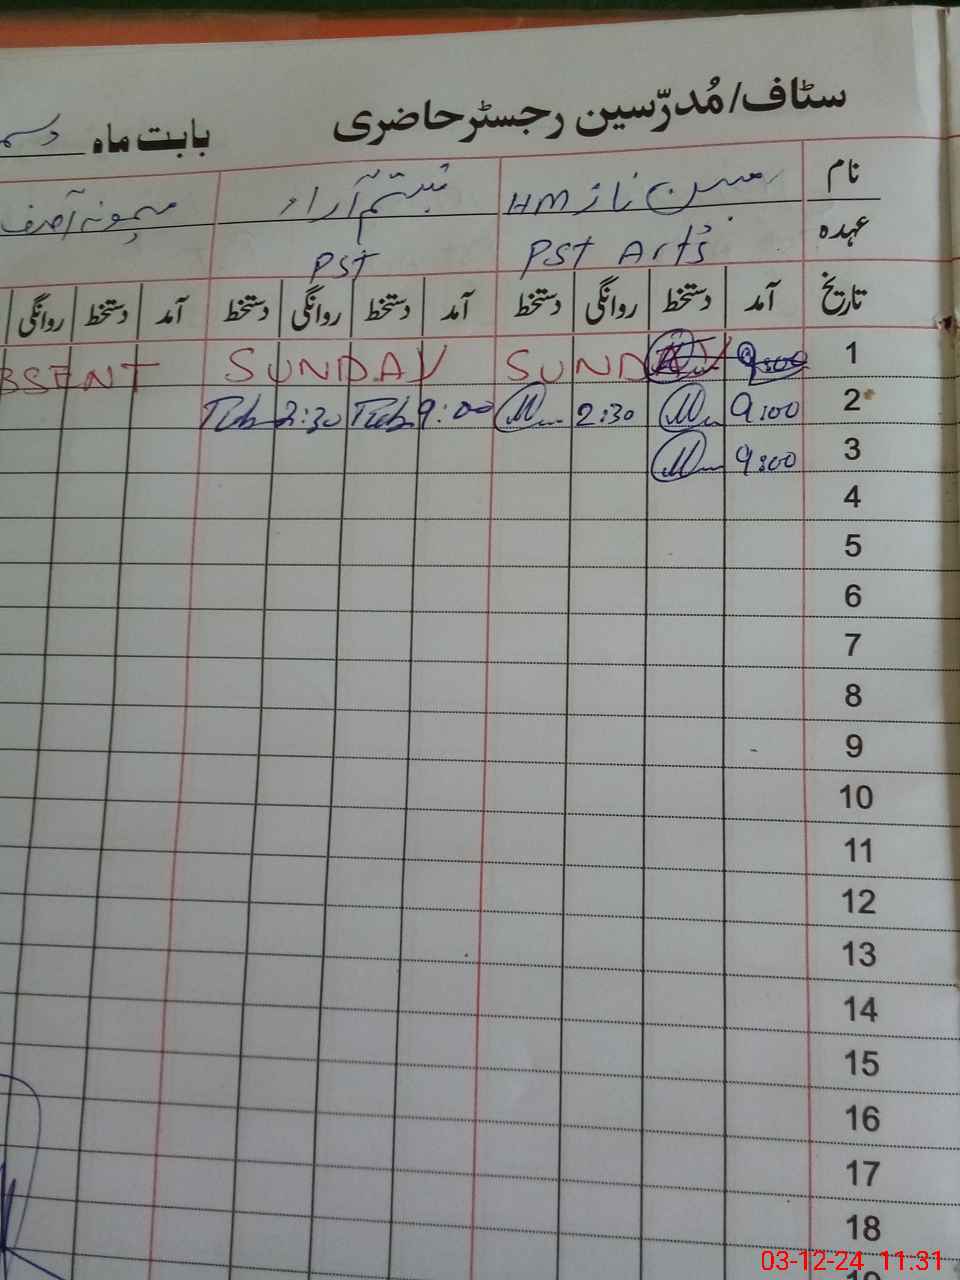 سٹاف/مُدرّسین رجسٹر حاضری بابت ماہ
نام ناز HM تبسّم آراء میمونہ آصف
عہدہ PST Arts PST
تاریخ آمد دستخط روانگی دستخط آمد دستخط روانگی دستخط آمد دستخط روانگی
1 9:00 SUNDAY SUNDAY BSENT
2 9:00 2:30 9:00 2:30
3 9:00
4
5
6
7
8
9
10
11
12
13
14
15
16
17
18
03-12-24 11:31